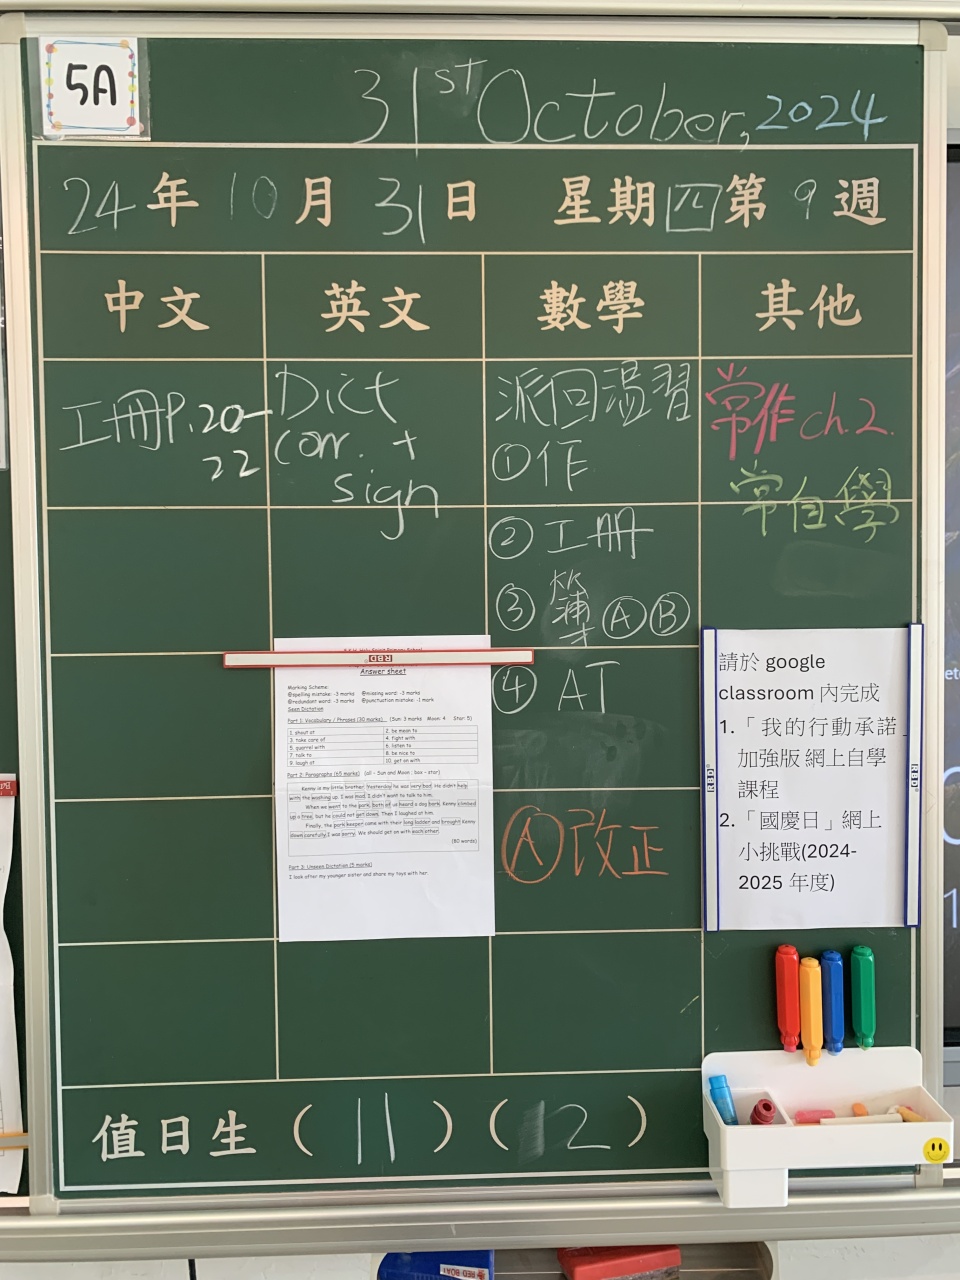 5A
31st October, 2024
24年10月31日 星期四第9週
中文 英文 數學 其他
工冊P.20-
22
Dict
corr. +
sign
派回溫習
①作
② 工冊
③ 簿ⒶⒷ
④ AT
Ⓐ改正
常作 ch.2.
常自學
RBD
Answer sheet
Marking Scheme:
@spelling mistake: -3 marks @missing word: -3 marks
@redundant word: -3 marks @punctuation mistake: -1 mark
Seen Dictation
Part 1: Vocabulary / Phrases (30 marks) (Sun: 3 marks Moon: 4 Star: 5)
1. shout at 2. be mean to
3. take care of 4. fight with
5. quarrel with 6. listen to
7. talk to 8. be nice to
9. laugh at 10. get on with
Part 2: Paragraphs (65 marks) (all - Sun and Moon ; box - star)
Kenny is my little brother. Yesterday he was very bad. He didn't help
with the washing up. I was mad. I didn't want to talk to him.
When we went to the park, both of us heard a dog bark. Kenny climbed
up a tree, but he could not get down. Then I laughed at him.
Finally, the park keeper came with their long ladder and brought Kenny
down carefully. I was sorry. We should get on with each other.
(80 words)
Part 3: Unseen Dictation (5 marks)
I look after my younger sister and share my toys with her.
請於 google
classroom 內完成
1.「我的行動承諾」
加強版 網上自學
課程
2.「國慶日」網上
小挑戰(2024-
2025 年度)
RBD
RBD
值日生 ( 11 ) ( 12 )
RED BOAT